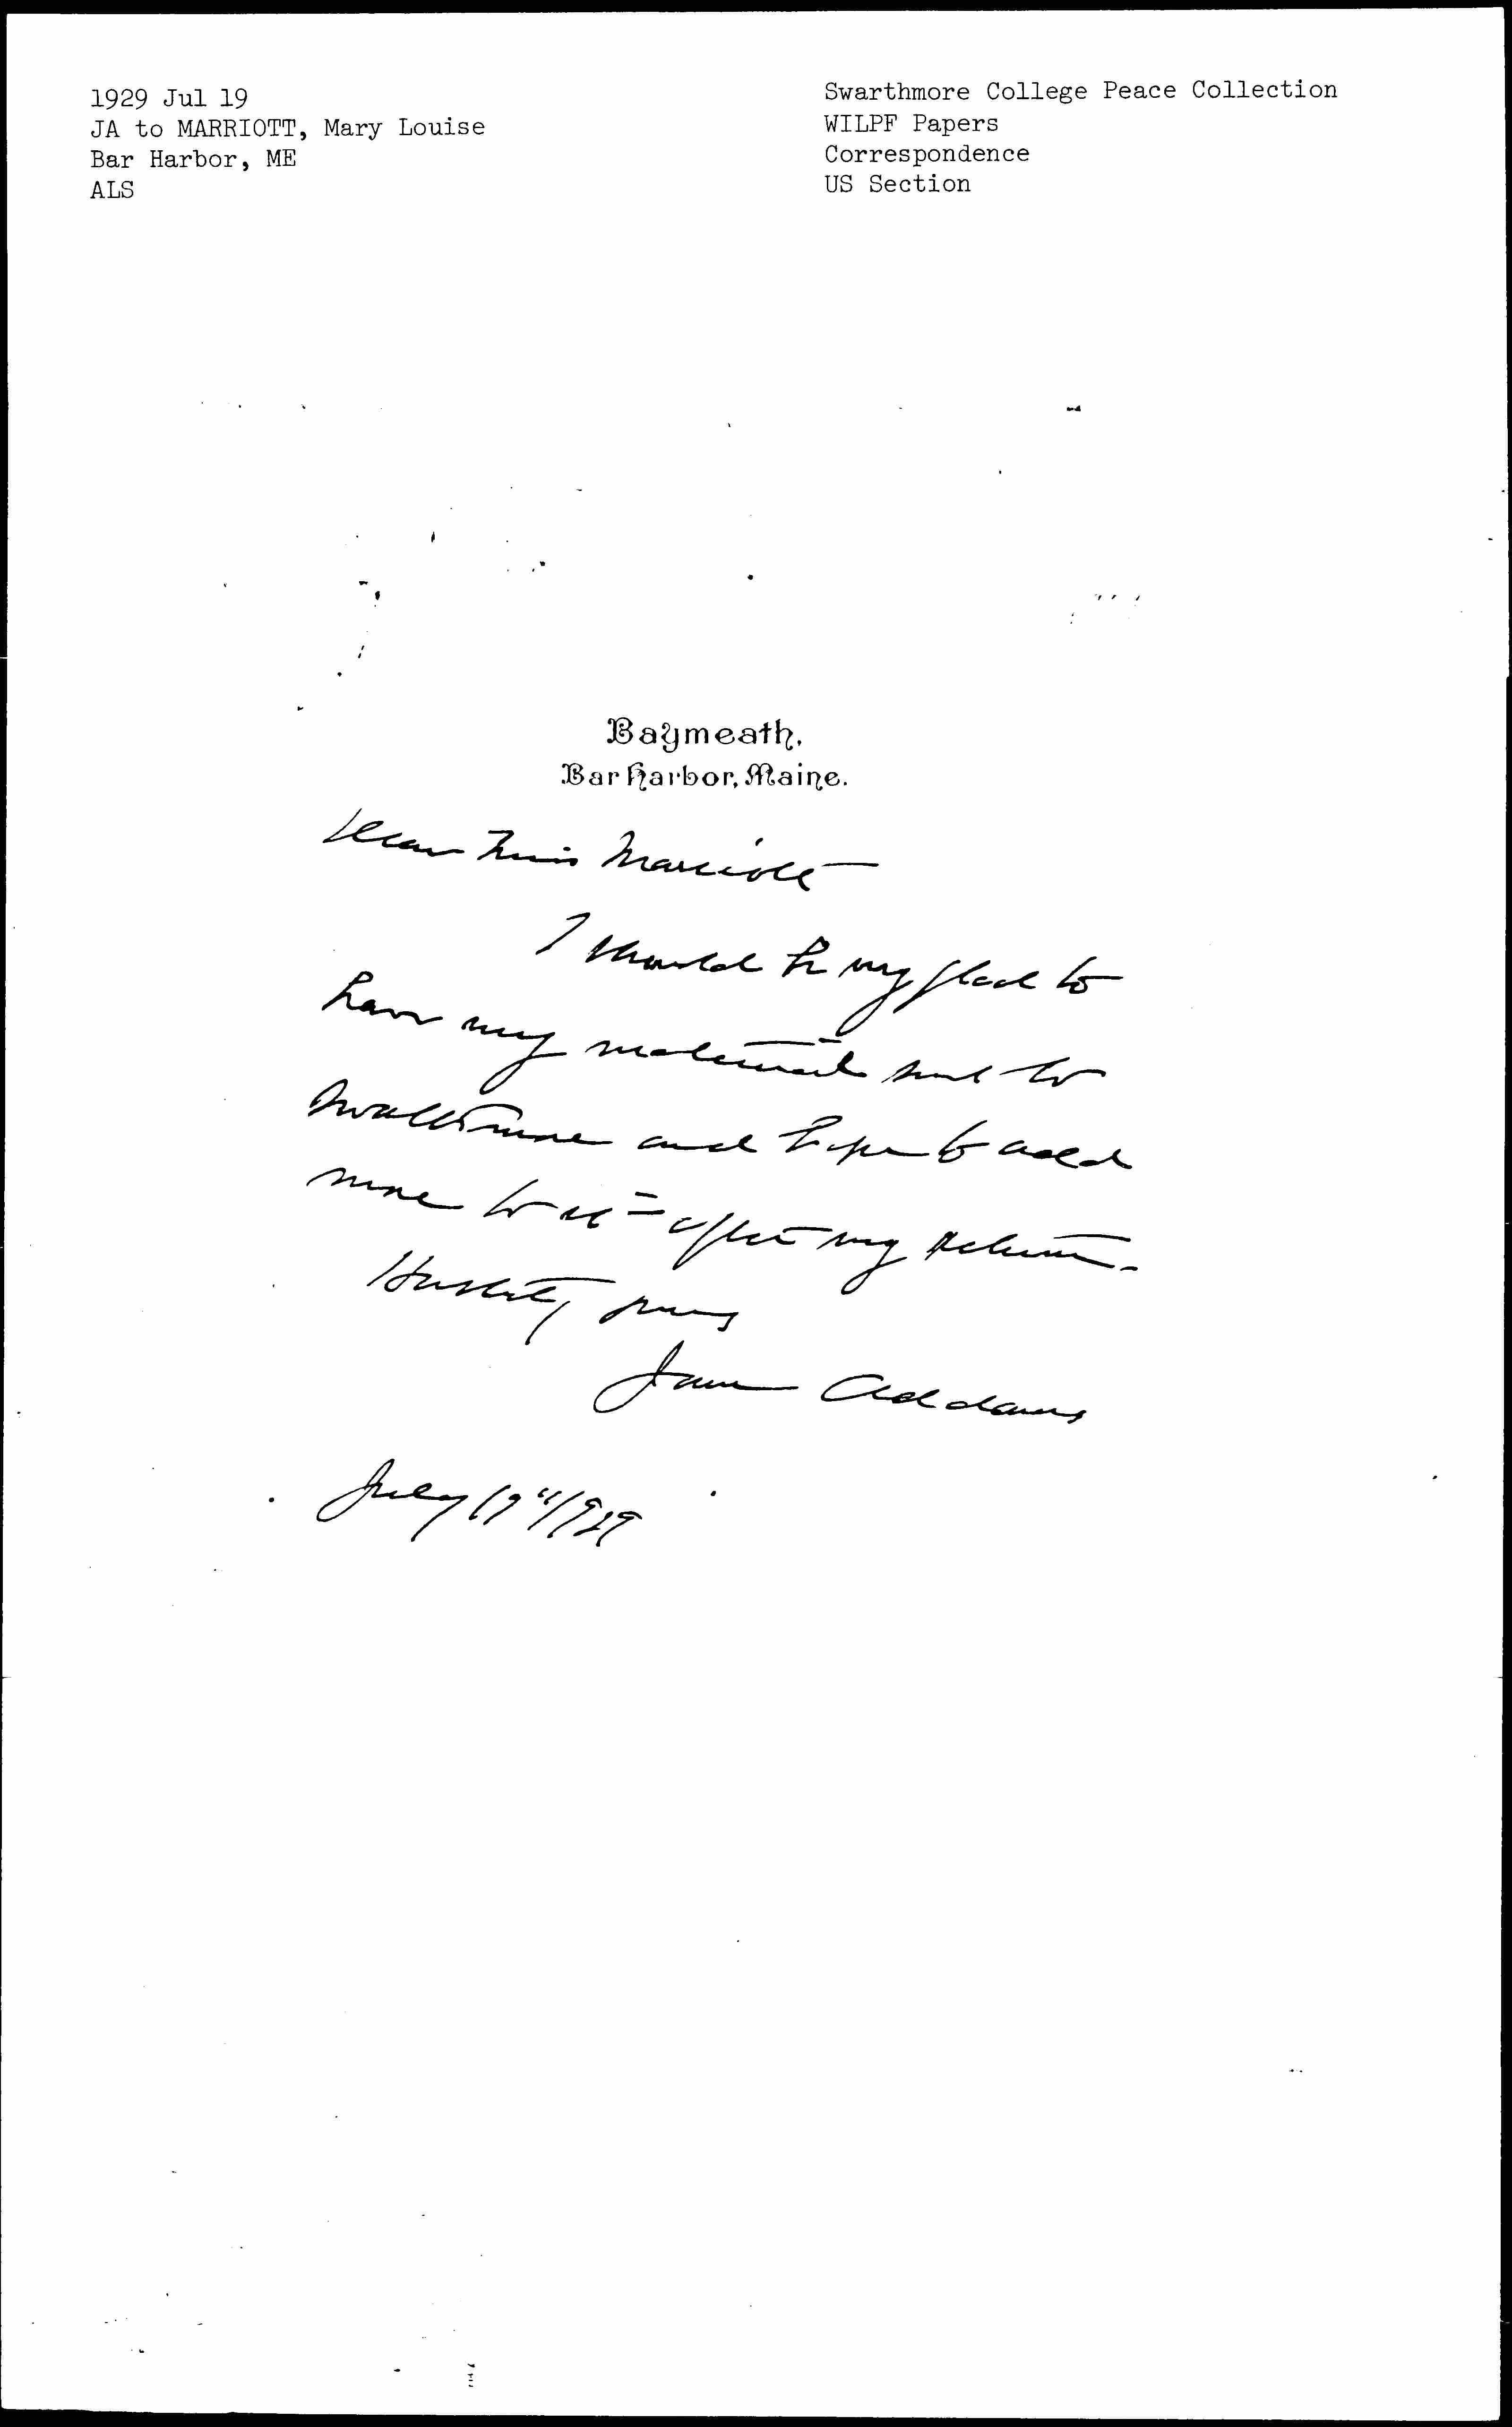 1929 Jul 19
JA to MARRIOTT, Mary Louise
Bar Harbor, ME
ALS
Swarthmore College Peace Collection
WILPF Papers
Correspondence
US Section
Baymeath,
Bar Harbor, Maine.
Dear Miss Marriott
I should be very glad to
have my material sent to
Swarthmore and hope to add
more to it – after my return.
Hastily yours
Jane Addams
July 19" 1929